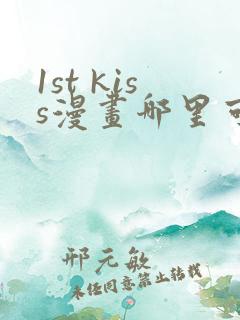 1st kis
s漫畫哪里可
邢元敏
未经同意禁止转载